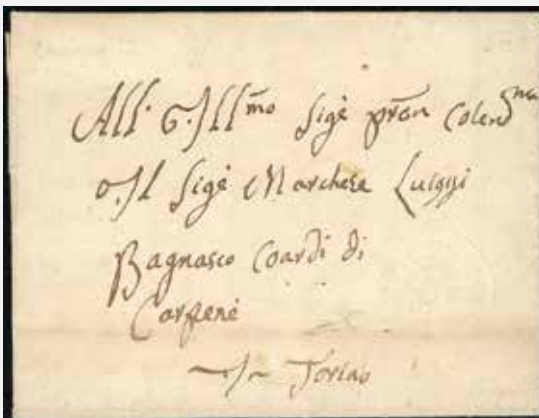 All. G. Ill.mo Sigr pron Colen.mo
Il Sigr Marchese Luiggi
Bagnasco Coardi di
Carpenè
Torino